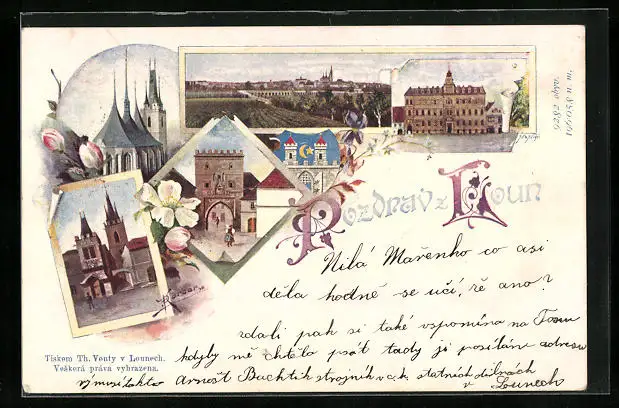 Pozdrav z Loun
Milá Mařenko co asi
děla hodně se učí, že ano?
zdali pak si také vspomína na
kdyby mě chtěla psát tady ji posílám adresu
Tiskem Th. Venty v Lounech.
Veškerá práva vyhrazena.
Arnošt Buchtik strojník v c. k. statních dílnách
v Lounech